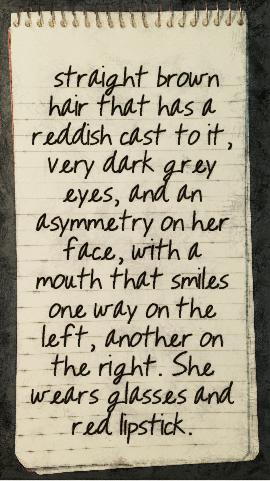 straight brown
hair that has a
reddish cast to it,
very dark grey
eyes, and an
asymmetry on her
face, with a
mouth that smiles
one way on the
left, another on
the right. She
wears glasses and
red lipstick.